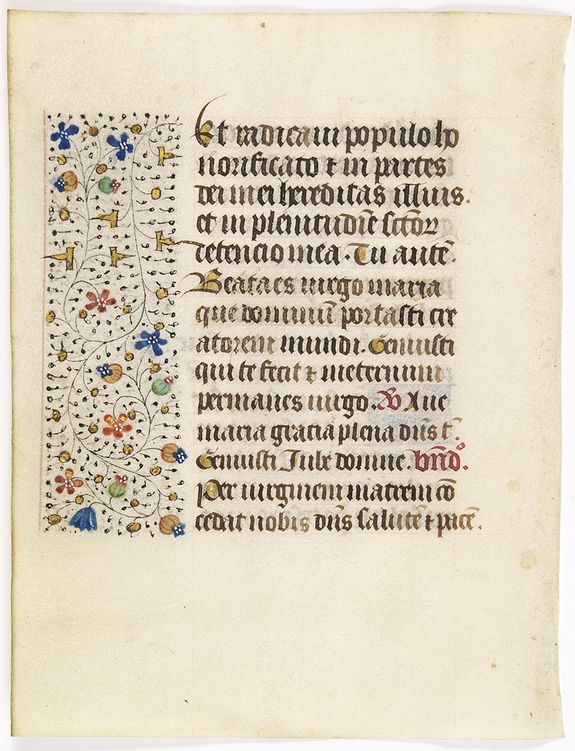 Et radicaui populo ho
norificato ⁊ in partes
dei mei hereditas illius.
et in plenitudīe sctōꝝ
detencio mea. Tu autē.
Beata es uirgo maria
que dominū portasti cre
atorem mundi. Genuisti
qui te fecit ⁊ ineternum
permanes uirgo. ℣ Aue
maria gratia plena dn̄s t̄.
Genuisti Iube domne. bn̄d̄.
Per uirginem matrem cō
cedat nobis dn̄s salutē ⁊ pacē.